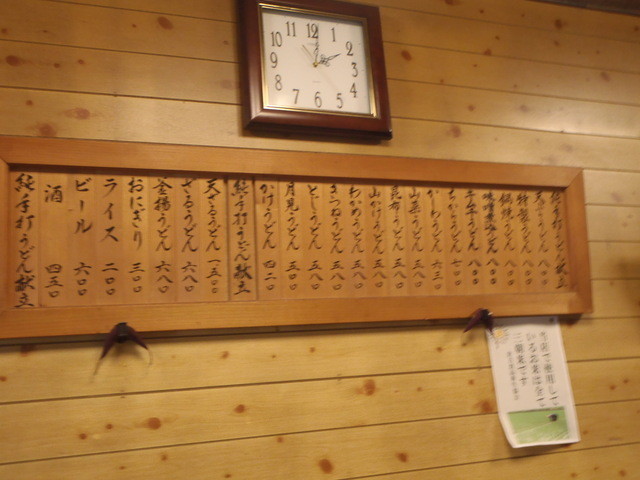 12
1
2
3
4
5
6
7
8
9
10
11
純手打うどん献立
天ぷらうどん 八〇〇
特製うどん 八〇〇
鍋焼うどん 八〇〇
味噌煮込うどん 八〇〇
ちからうどん 七〇〇
かしわうどん 六三〇
山菜うどん 五八〇
昆布うどん 五八〇
山かけうどん 五八〇
わかめうどん 五八〇
きつねうどん 五八〇
とじうどん 五八〇
月見うどん 五〇〇
かけうどん 四二〇
純手打うどん献立
天ざるうどん 一、三〇〇
ざるうどん 六八〇
釜揚うどん 六八〇
おにぎり 三〇〇
ライス 二〇〇
ビール 六〇〇
酒 四五〇
純手打うどん献立
当店で使用して
いるお米は全て
三朝米です